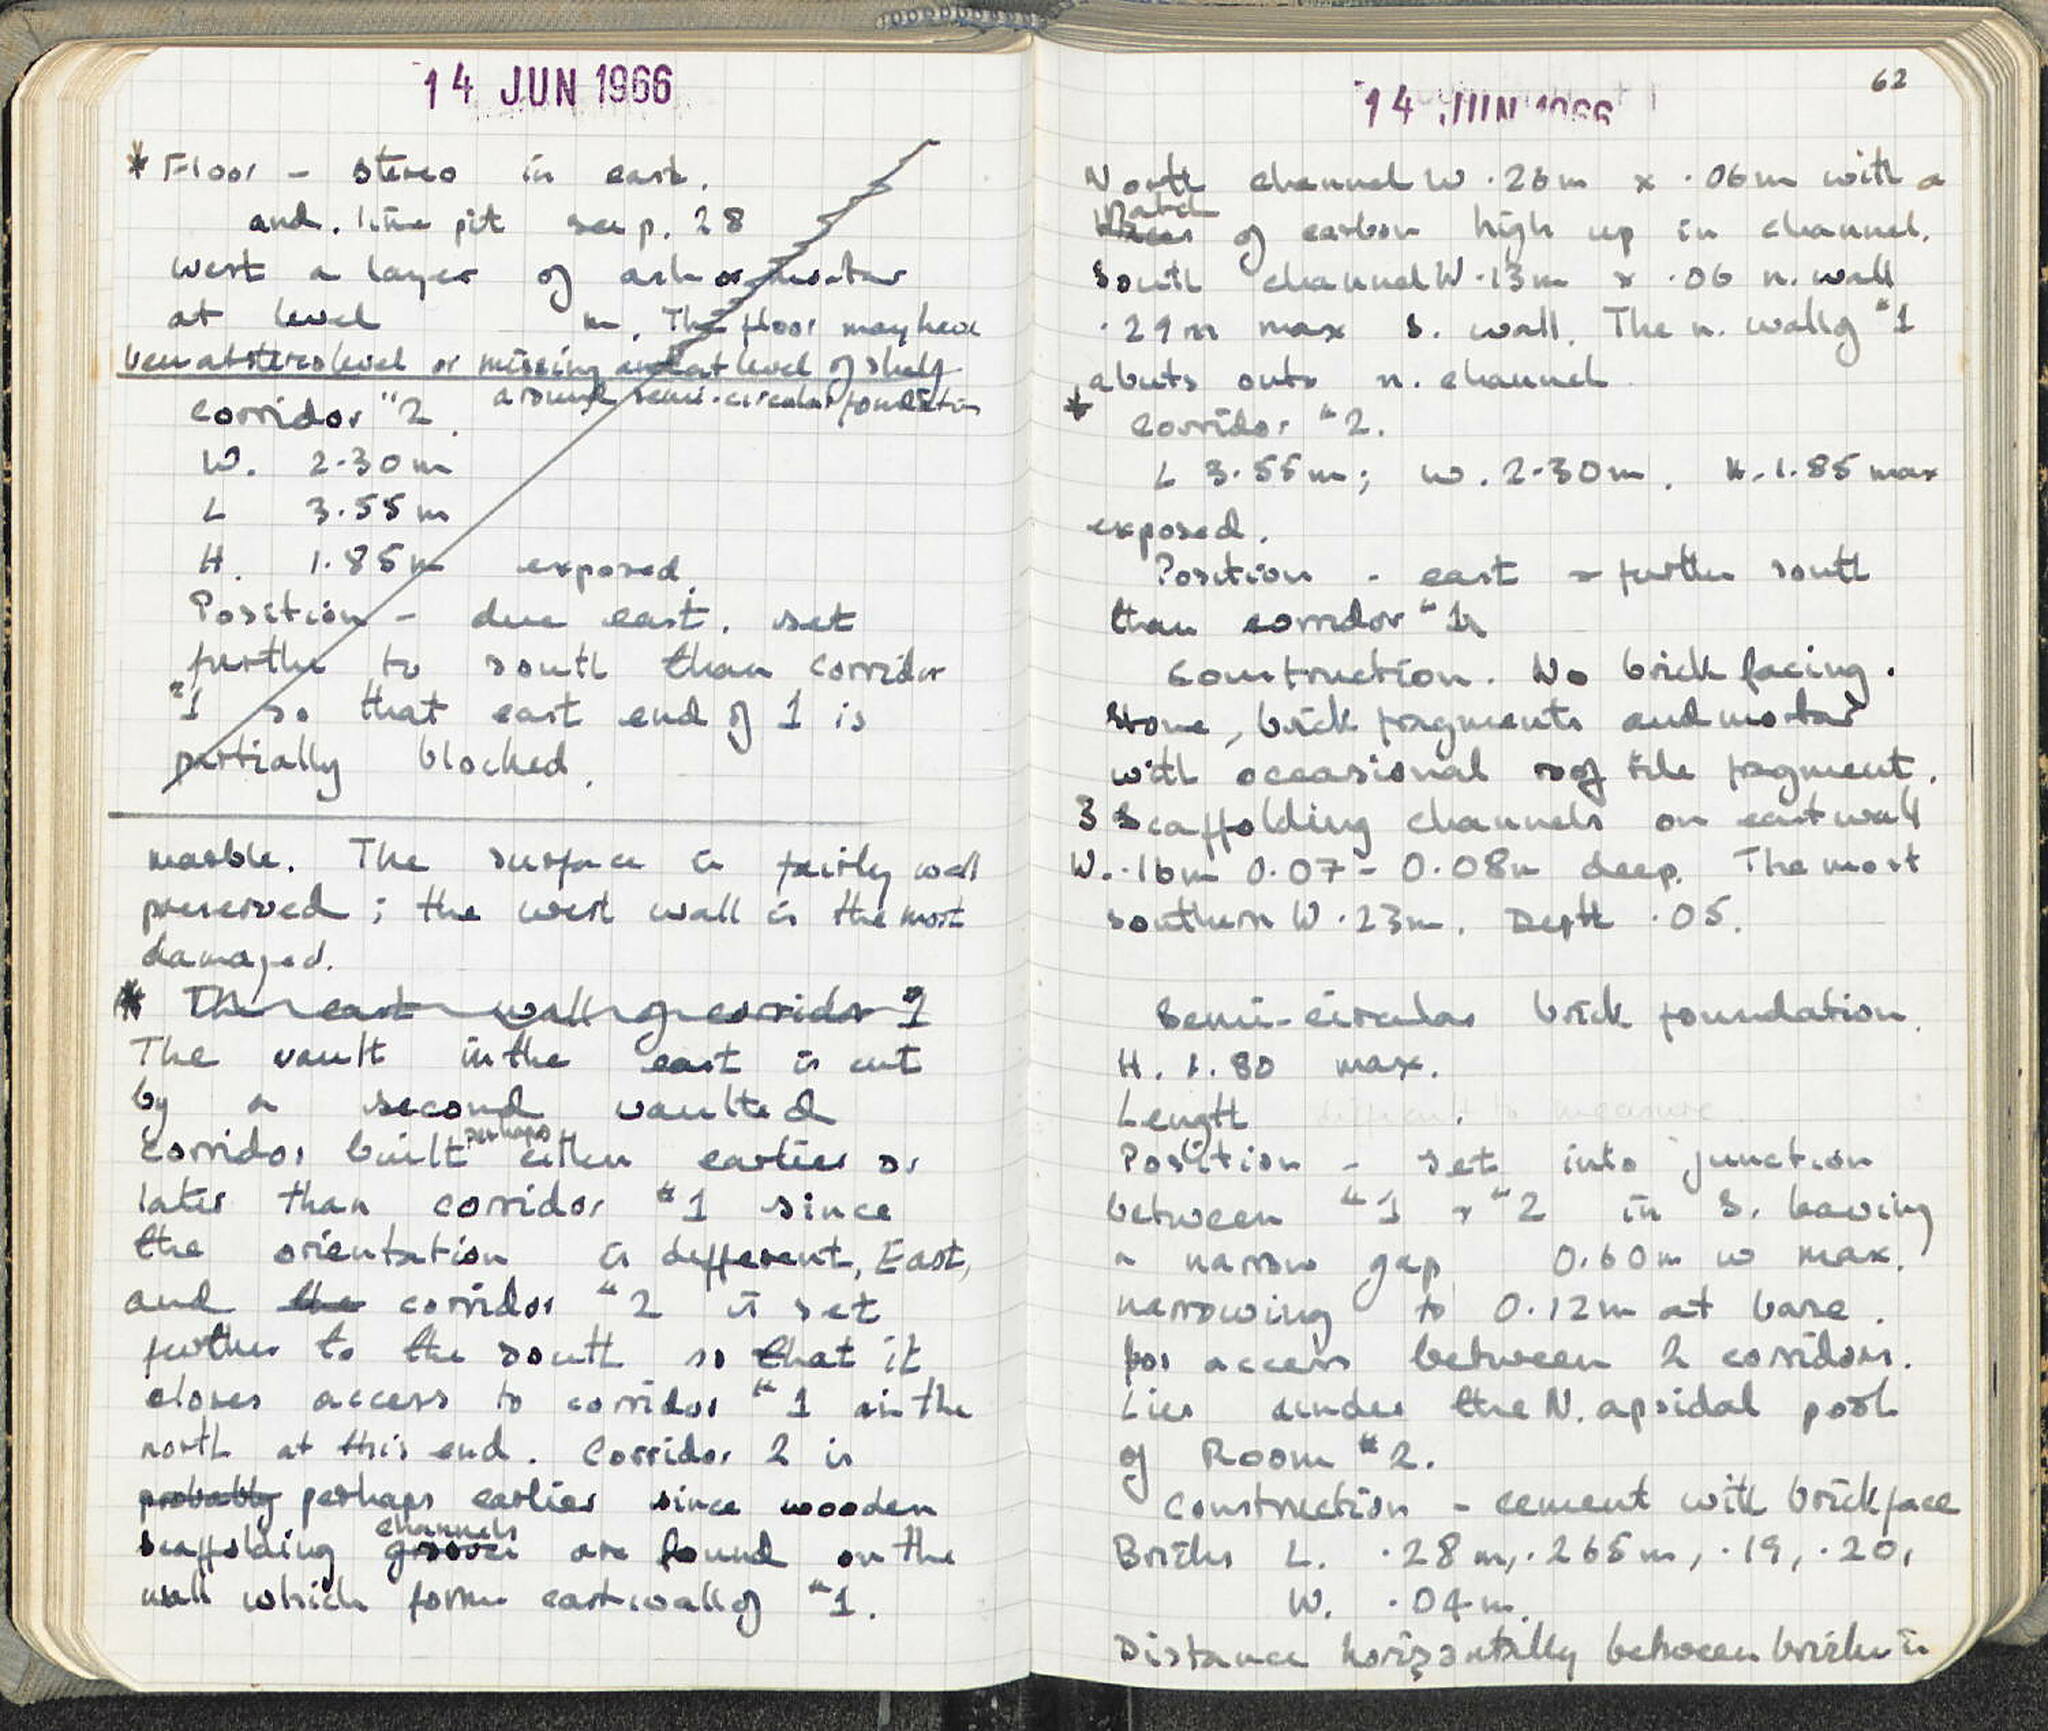 14 JUN 1966
* Floor - stereo in east.
and. lime pit see p. 28
west a layer of ash or mortar
at level m. The floor may have
been at stereo level or missing and at level of shelf
around semi-circular foundation
Corridor "2.
W. 2.30m
L 3.55m
H. 1.85m exposed.
Position - due east. set
further to south than corridor
"1 so that east end of 1 is
partially blocked.
marble. The surface is fairly well
preserved; the west wall is the most
damaged.
* The east wall of corridor "1
The vault in the east is cut
by a second vaulted
corridor built perhaps either earlier or
later than corridor "1 since
the orientation is different, East,
and the corridor "2 is set
further to the south so that it
closes access to corridor "1 in the
north at this end. Corridor 2 is
probably perhaps earlier since wooden
channels
scaffolding grooves are found on the
wall which forms east wall of "1.
62
14 JUN 1966
North channel W .26m x .06m with a
patch
of carbon high up in channel.
South channel W .13m x .06 n. wall
.29m max s. wall. The n. wall of "1
abuts onto n. channel
* Corridor "2.
L 3.55m; W. 2.30m. H. 1.85 max
exposed.
Position - east - further south
than corridor "1.
Construction. No brick facing.
Stone, brick fragments and mortar
with occasional roof tile fragment.
3 Scaffolding channels on east wall
W. .16m 0.07 - 0.08m deep. The most
southern W .23m. Depth .05.
Semi-circular brick foundation.
H. 1.80 max.
Length difficult to measure.
Position - set into junction
between "1 + "2 in S. leaving
a narrow gap 0.60m w max.
narrowing to 0.12m at base.
for access between 2 corridors.
Lies under the N. apsidal pool
of Room "2.
Construction - cement with brick face
Bricks L. .28m, .265m, .19, .20,
W. .04m.
Distance horizontally between bricks is